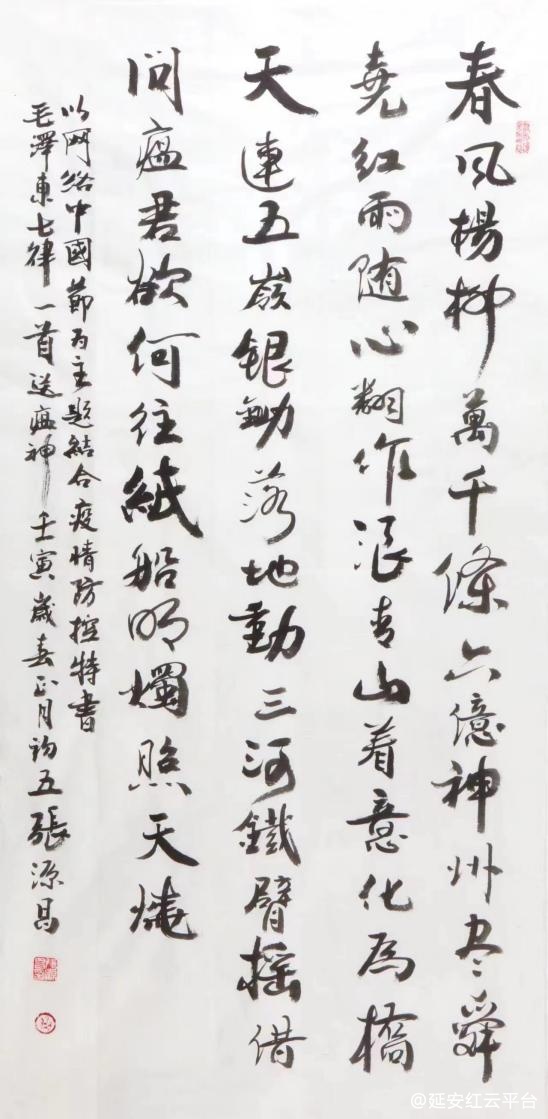 春风楊柳萬千條六億神州尽舜
堯红雨随心翻作浪青山着意化为橋
天連五嶺銀鋤落地動三河鐵臂摇借
问瘟君欲何往紙船明燭照天燒
以网络中國節为主题結合疫情防控特書
毛澤東七律一首送瘟神壬寅歲春正月初五張源昌
@延安红云平台